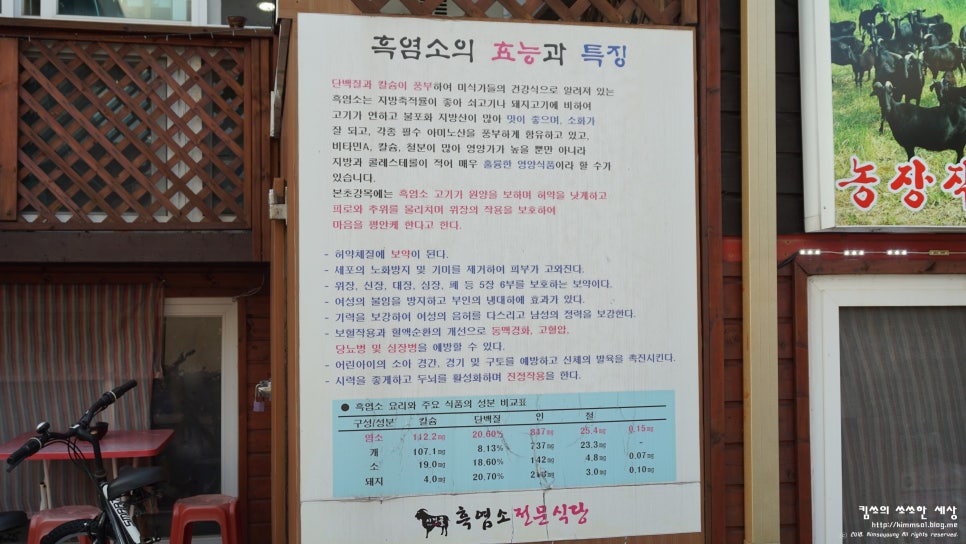 흑염소의 효능과 특징
단백질과 칼슘이 풍부하여 미식가들의 건강식으로 알려져 있는
흑염소는 지방축적률이 좋아 쇠고기나 돼지고기에 비하여
고기가 연하고 불포화 지방산이 많아 맛이 좋으며, 소화가
잘 되고, 각종 필수 아미노산을 풍부하게 함유하고 있고,
비타민A, 칼슘, 철분이 많아 영양가가 높을 뿐만 아니라
지방과 콜레스테롤이 적어 매우 훌륭한 영양식품이라 할 수가
있습니다.
본초강목에는 흑염소 고기가 원양을 보하며 허약을 낫게하고
피로와 추위를 물리치며 위장의 작용을 보호하여
마음을 평안케 한다고 한다.
- 허약체질에 보약이 된다.
- 세포의 노화방지 및 기미를 제거하여 피부가 고와진다.
- 위장, 신장, 대장, 심장, 폐 등 5장 6부를 보호하는 보약이다.
- 여성의 불임을 방지하고 부인의 냉대하에 효과가 있다.
- 기력을 보강하여 여성의 음허를 다스리고 남성의 정력을 보강한다.
- 보혈작용과 혈액순환의 개선으로 동맥경화, 고혈압,
당뇨병 및 심장병을 예방할 수 있다.
- 어린아이의 소아 경간, 경기 및 구토를 예방하고 신체의 발육을 촉진시킨다.
- 시력을 좋게하고 두뇌를 활성화하며 진정작용을 한다.
● 흑염소 요리와 주요 식품의 성분 비교표
구성/성분 칼슘 단백질 인 철
염소 112.2mg 20.60% 847mg 25.4mg 0.15mg
개 107.1mg 8.13% 737mg 23.3mg -
소 19.0mg 18.60% 142mg 4.8mg 0.07mg
돼지 4.0mg 20.70% 3.0mg 0.10mg
흑염소전문식당
농장직
킴쏘의 쏘쏘한 세상
http://kimmso1.blog.me
© 2018. Kimsoyoung All rights reserved.